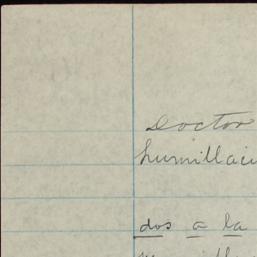 Doctor
humillaci
dos a la